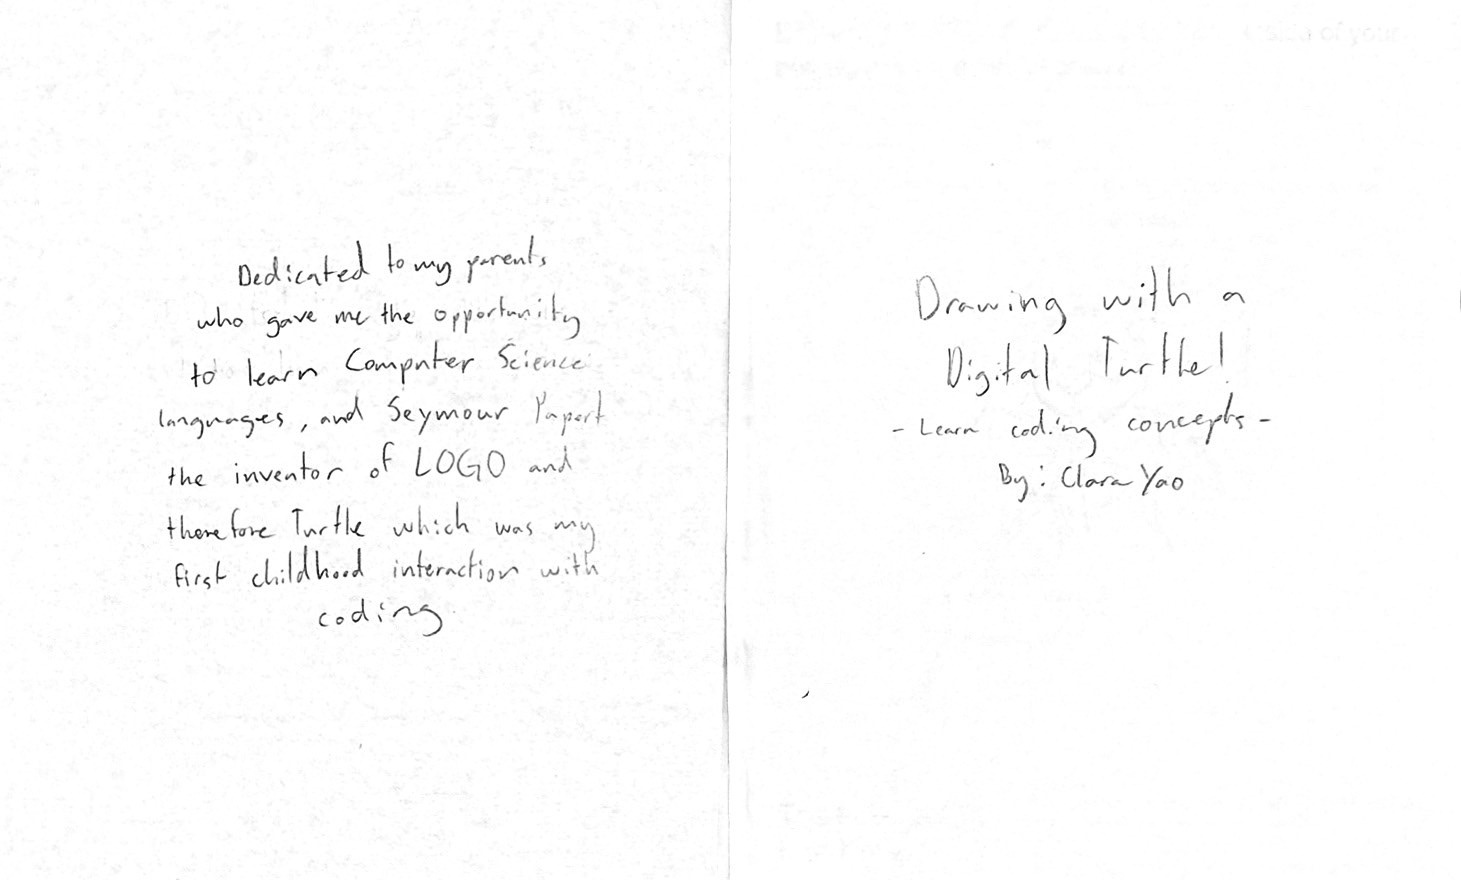 Dedicated to my parents
who gave me the opportunity
to learn Computer Science
languages, and Seymour Papert
the inventor of LOGO and
therefore Turtle which was my
first childhood interaction with
coding
Drawing with a
Digital Turtle!
- Learn coding concepts -
By: Clara Yao